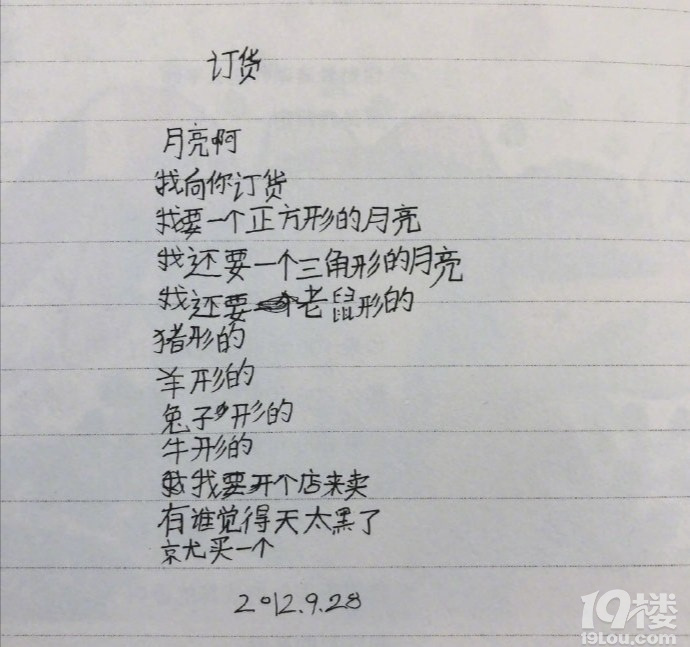 订货
月亮啊
我向你订货
我要一个正方形的月亮
我还要一个三角形的月亮
我还要老鼠形的
猪形的
羊形的
兔子形的
牛形的
我要开个店来卖
有谁觉得天太黑了
就买一个
2012.9.28
19楼
19Lou.com